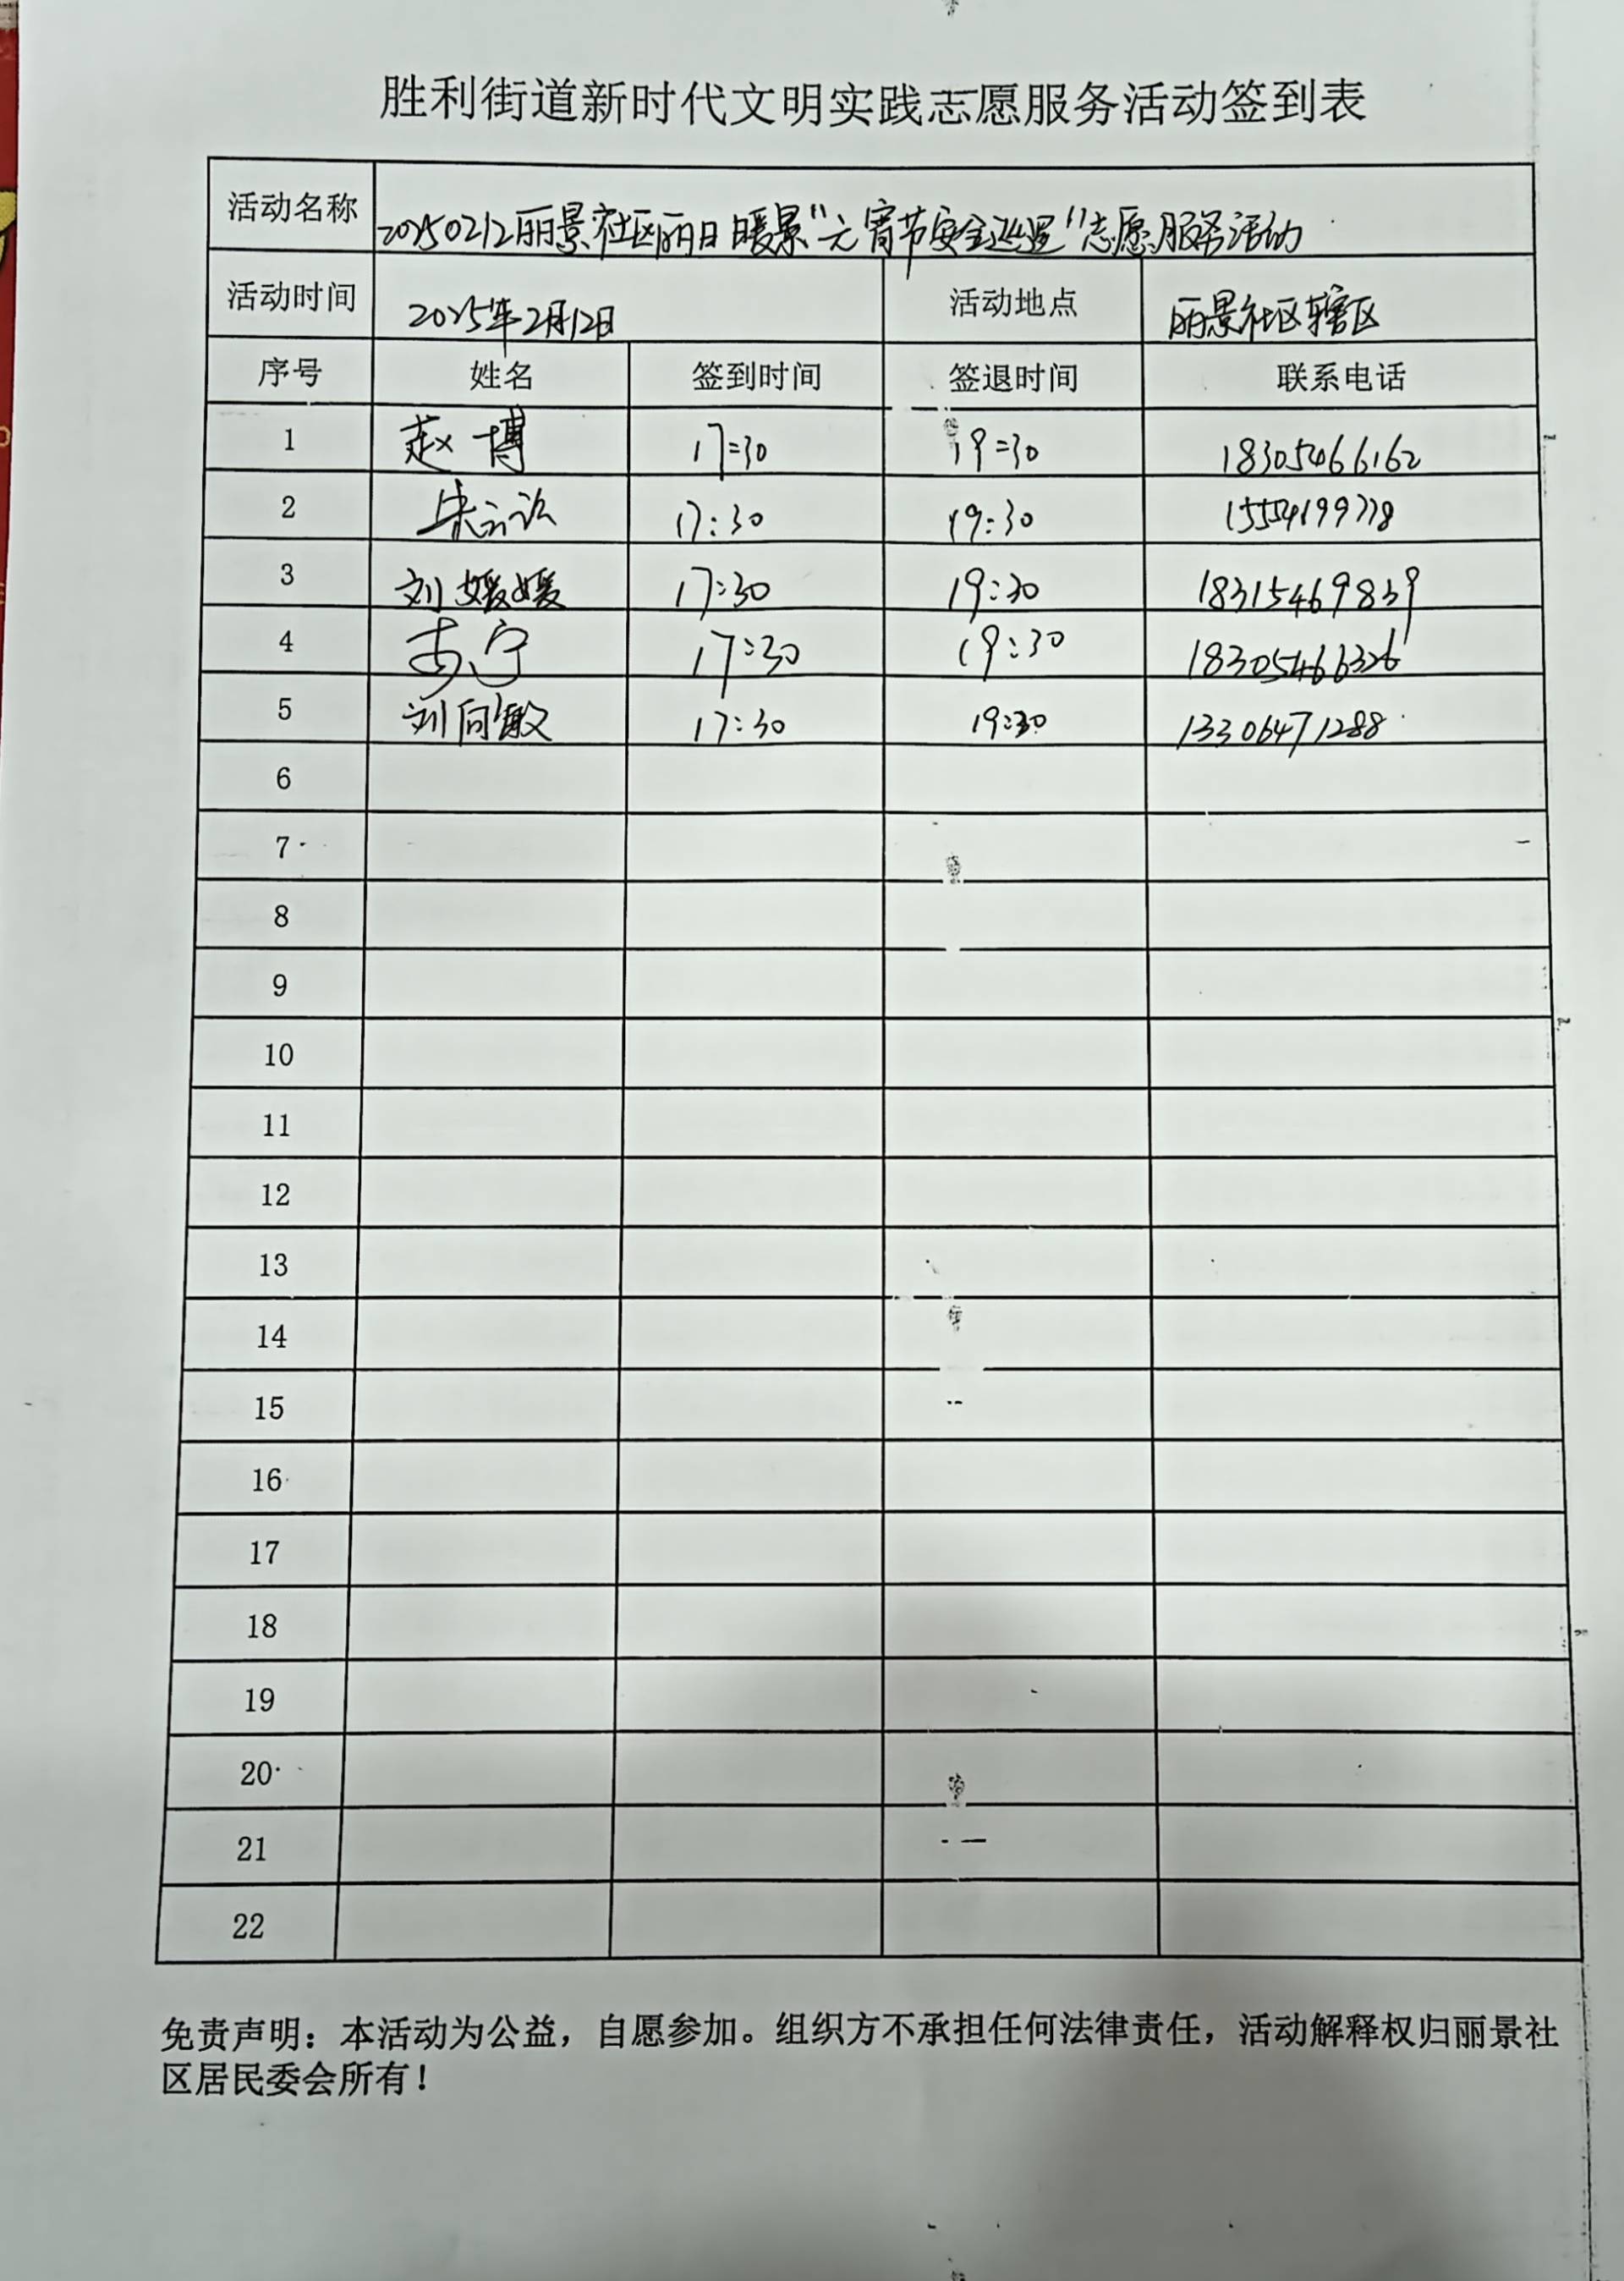 胜利街道新时代文明实践志愿服务活动签到表
活动名称 20250212丽景社区丽日暖景“元宵节安全巡逻”志愿服务活动
活动时间 2025年2月12日 活动地点 丽景社区辖区
序号 姓名 签到时间 签退时间 联系电话
1 赵博 17:30 19:30 18305466162
2 17:30 19:30
3 刘媛媛 17:30 19:30 18315469839
4 17:30 19:30 18305466326
5 刘向敏 17:30 19:30 13306471288
6
7
8
9
10
11
12
13
14
15
16
17
18
19
20
21
22
免责声明：本活动为公益，自愿参加。组织方不承担任何法律责任，活动解释权归丽景社
区居民委会所有！